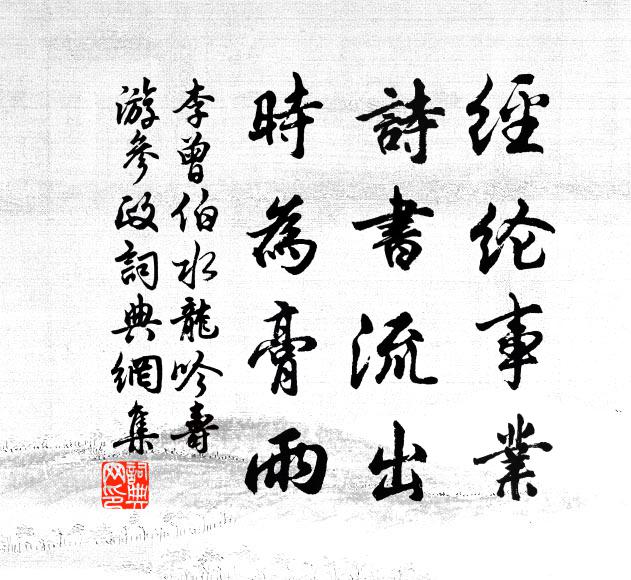 經纶事業
詩書流出
時為膏雨
李曾伯水龍吟壽
游參政詞典網集
詞典网印